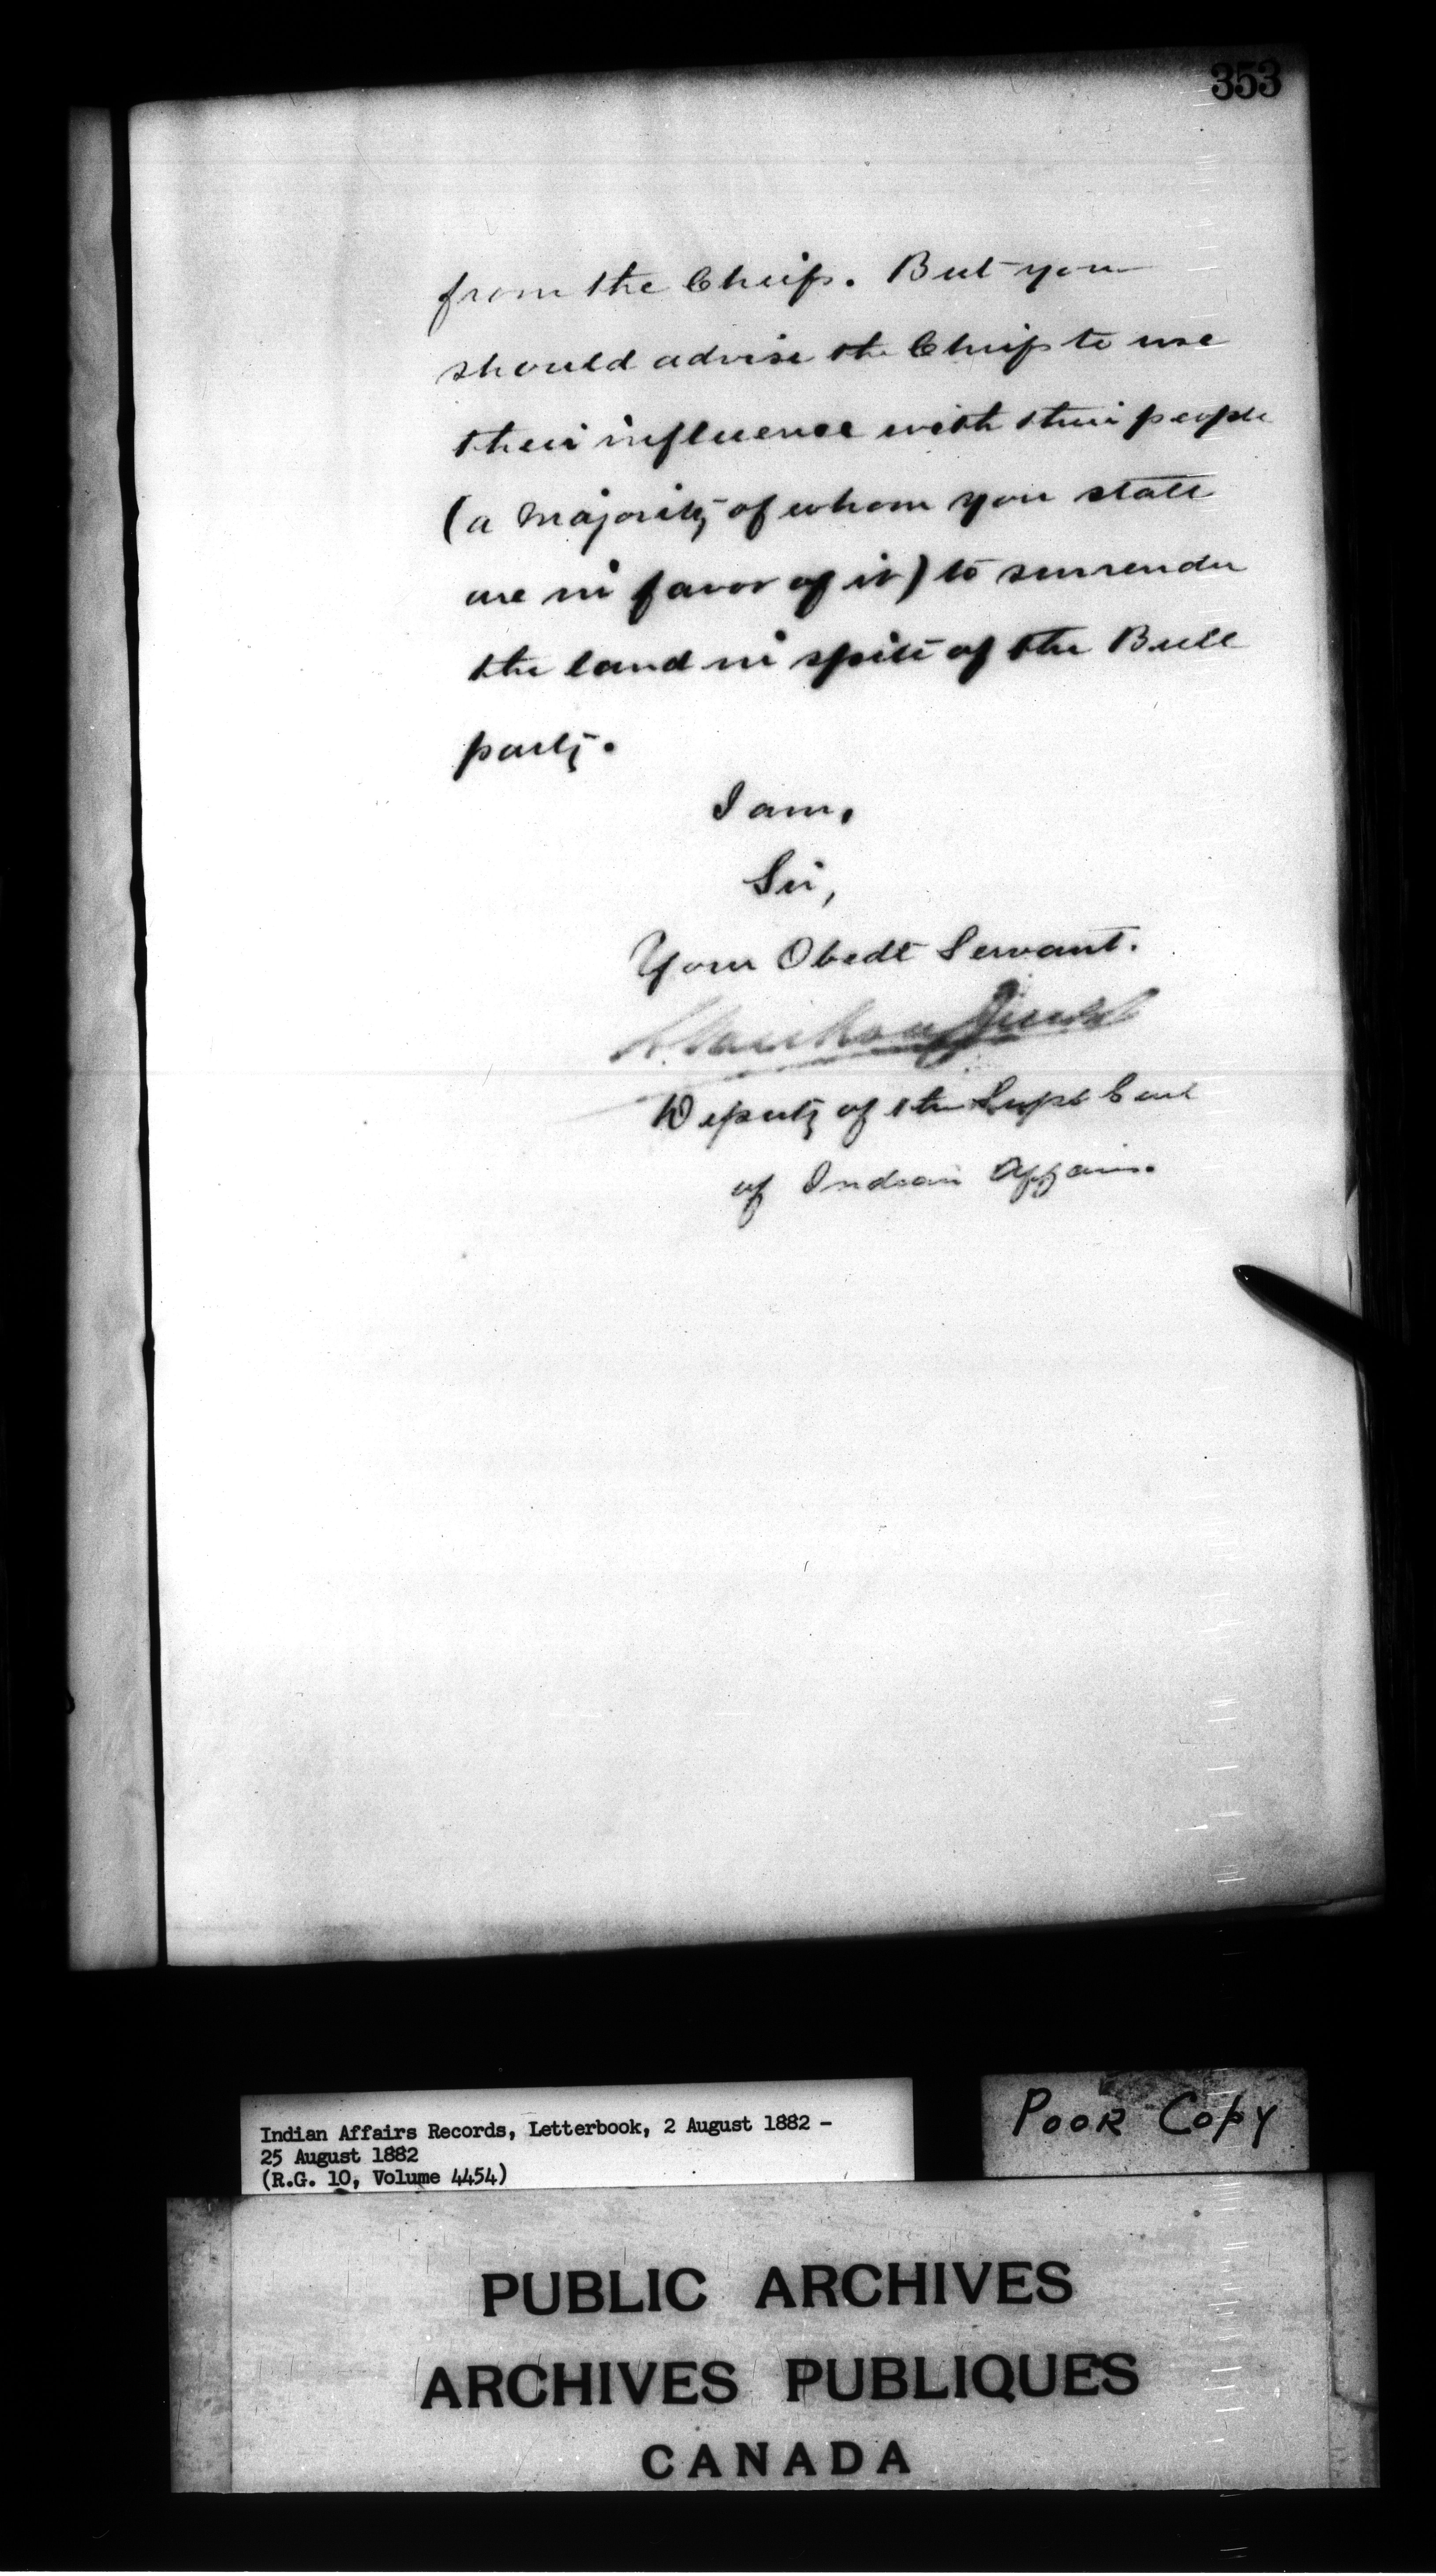 353
from the Chiefs. But you
should advise the Chiefs to use
their influence with their people
(a majority of whom you state
are in favor of it) to surrender
the land in spite of the Bull
party.
I am,
Sir,
Your Obedt Servant.
Deputy of the Supt Genl
of Indian Affairs.
Indian Affairs Records, Letterbook, 2 August 1882 -
25 August 1882
(R.G. 10, Volume 4454)
POOR COPY
PUBLIC ARCHIVES
ARCHIVES PUBLIQUES
CANADA